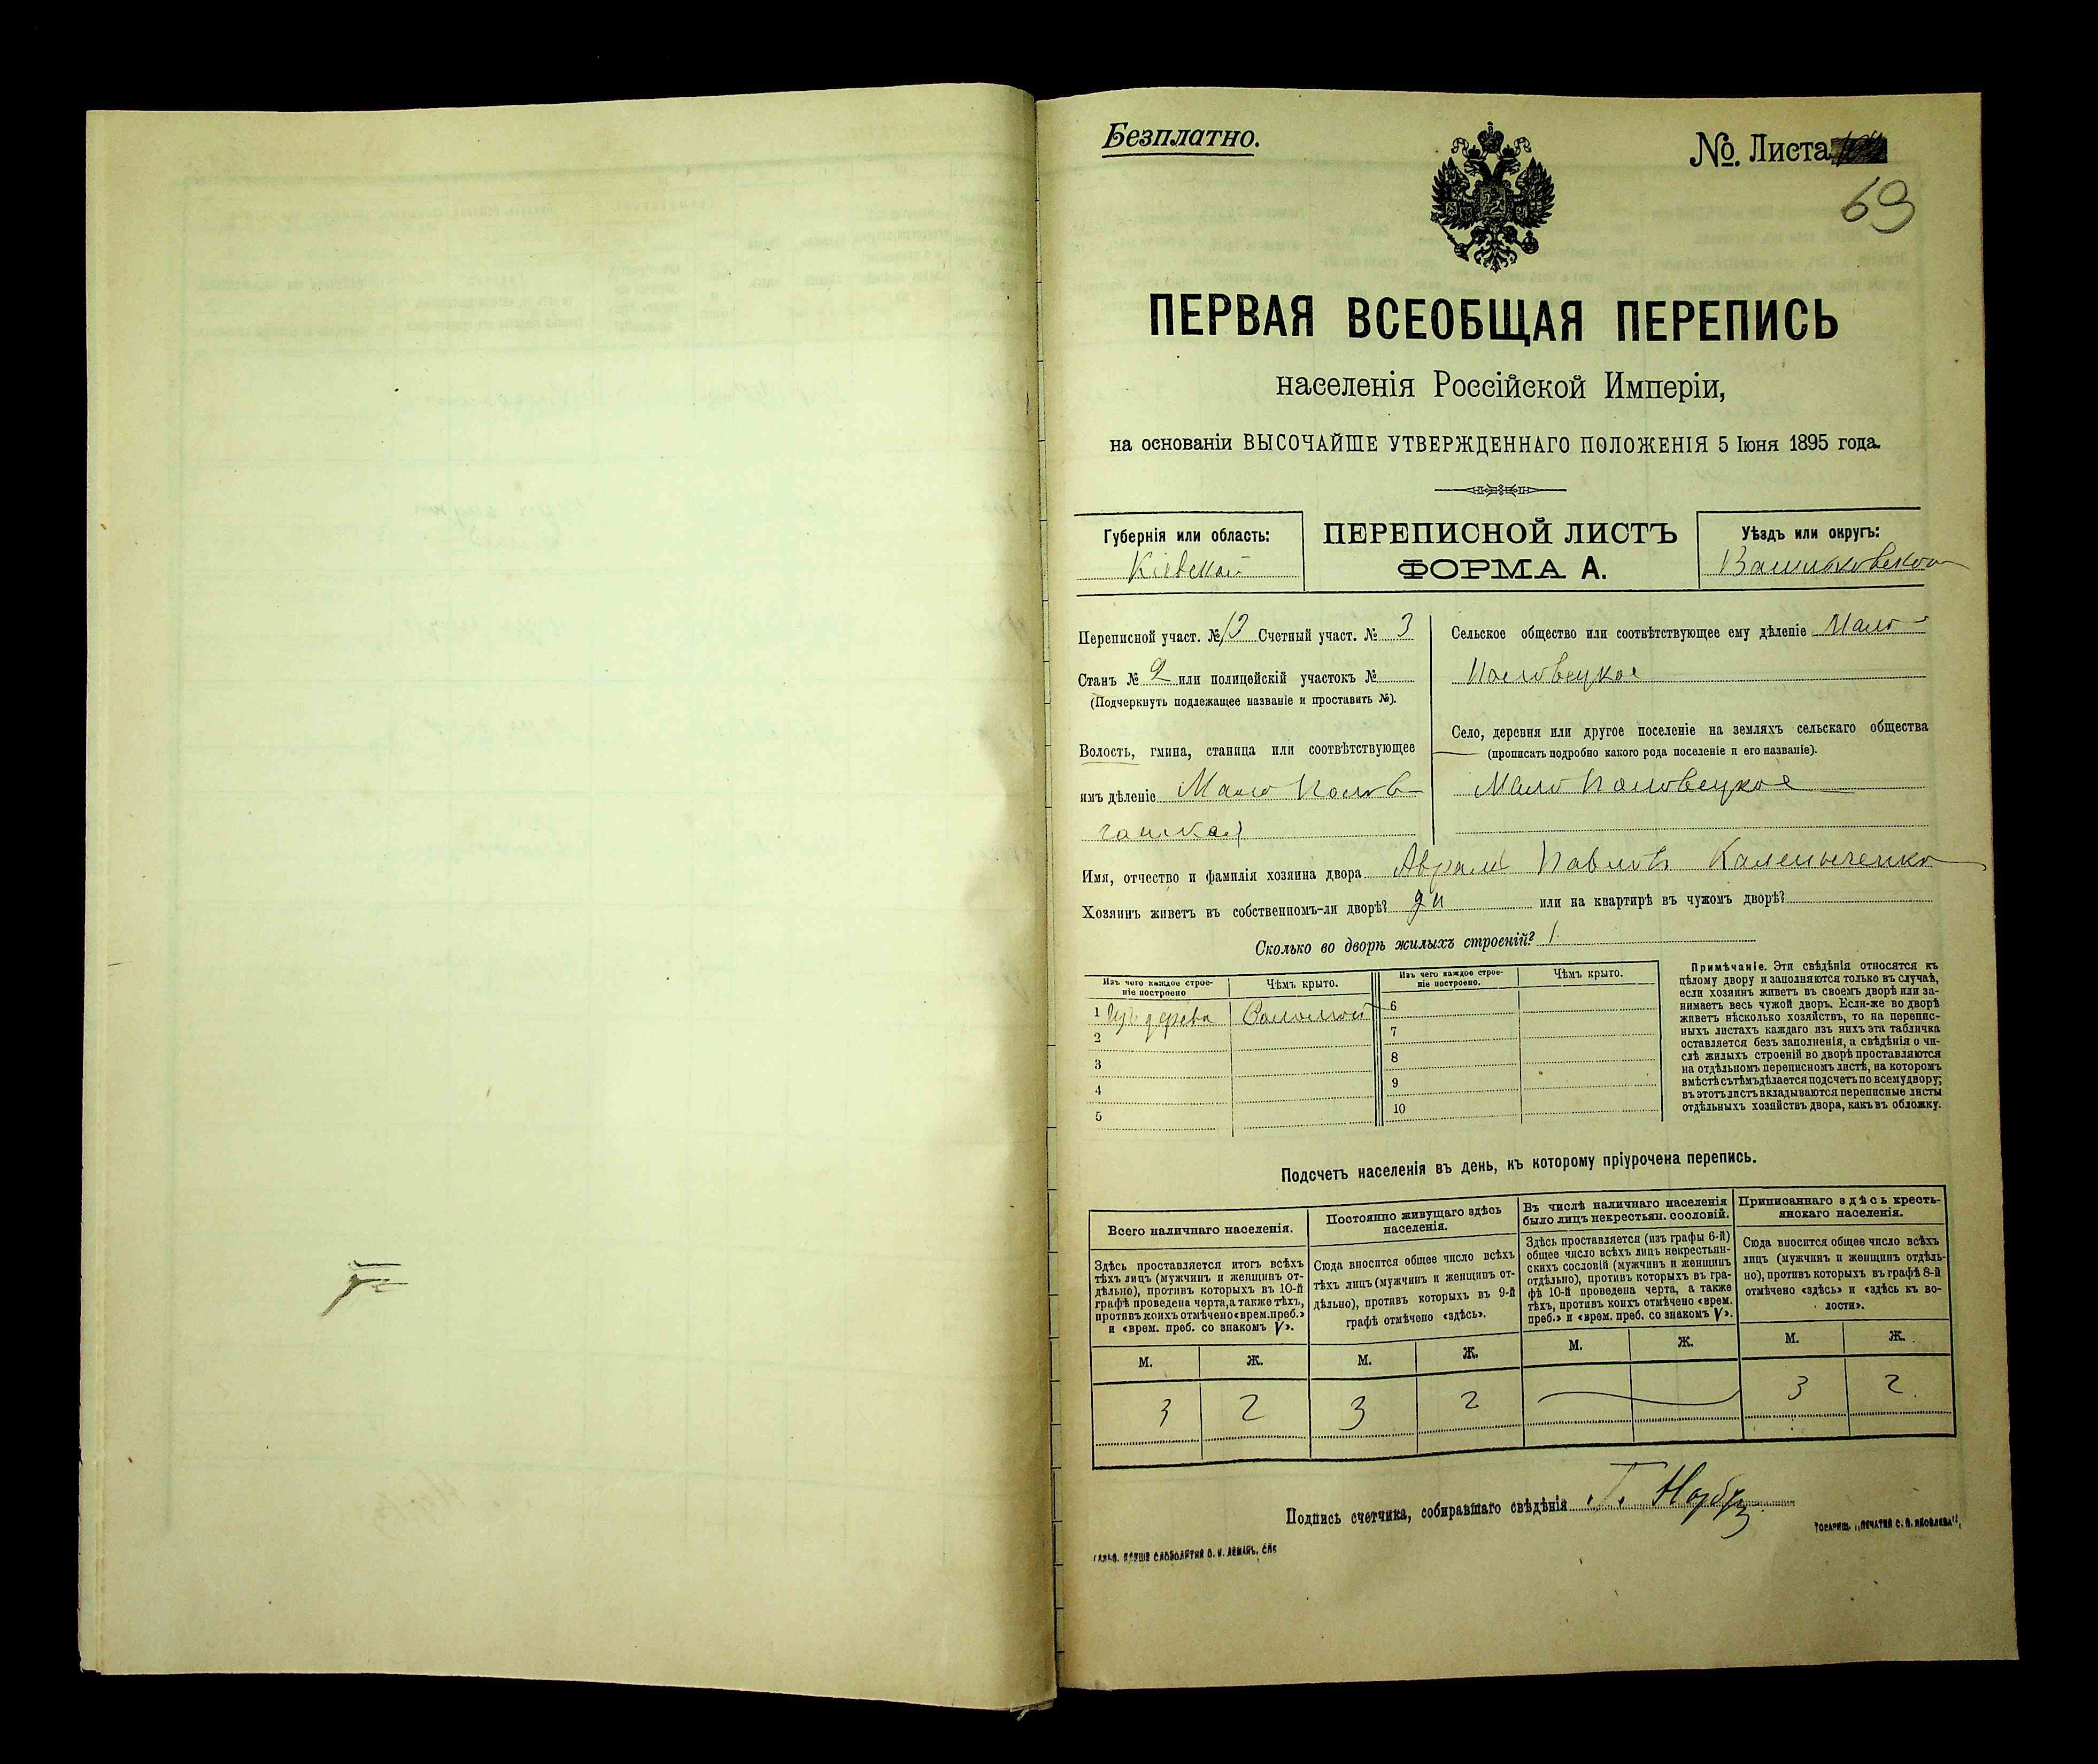 Безплатно.
№. Листа
69
ПЕРВАЯ ВСЕОБЩАЯ ПЕРЕПИСЬ
населенія Россійской Имперіи,
на основаніи ВЫСОЧАЙШЕ УТВЕРЖДЕННАГО ПОЛОЖЕНІЯ 5 Іюня 1895 года.
Губернія или область:
Кіевской
ПЕРЕПИСНОЙ ЛИСТЪ
ФОРМА А.
Уѣздъ или округъ:
Васильковскои
Переписной участ. № 13 Счетный участ. № 3
Станъ № 2 или полицейскій участокъ №
(Подчеркнуть подлежащее названіе и проставить №).
Волость, гмина, станица или соотвѣтствующее
имъ дѣленіе Мало Полов
Сельское общество или соотвѣтствующее ему дѣленіе Мало
Половецкое
Село, деревня или другое поселеніе на земляхъ сельскаго общества
(прописать подробно какого рода поселеніе и его названіе).
Мало Половецкое
Имя, отчество и фамилія хозяина двора Аврам Павловъ
Хозяинъ живетъ въ собственномъ-ли дворѣ? да или на квартирѣ въ чужомъ дворѣ?
Сколько во дворѣ жилыхъ строеній? 1
Изъ чего каждое строе-
ніе построено
Чѣмъ крыто.
1 Изъ дерева Соломой
2
3
4
5
Изъ чего каждое строе-
ніе построено.
Чѣмъ крыто.
6
7
8
9
10
Примѣчаніе. Эти свѣдѣнія относятся къ
цѣлому двору и заполняются только въ случаѣ,
если хозяинъ живетъ въ своемъ дворѣ или за-
нимаетъ весь чужой дворъ. Если-же во дворѣ
живетъ нѣсколько хозяйствъ, то на перепис-
ныхъ листахъ каждаго изъ нихъ эта табличка
оставляется безъ заполненія, а свѣдѣнія о чи-
слѣ жилыхъ строеній во дворѣ проставляются
на отдѣльномъ переписномъ листѣ, на которомъ
вмѣстѣ съ тѣмъ дѣлается подсчетъ по всему двору;
въ этотъ листъ вкладываются переписные листы
отдѣльныхъ хозяйствъ двора, какъ въ обложку.
Подсчетъ населенія въ день, къ которому пріурочена перепись.
Всего наличнаго населенія.
Здѣсь проставляется итогъ всѣхъ
тѣхъ лицъ (мужчинъ и женщинъ от-
дѣльно), противъ которыхъ въ 10-й
графѣ проведена черта, а также тѣхъ,
противъ коихъ отмѣчено «врем. преб.»
и «врем. преб. со знакомъ V».
М. Ж.
3 2
Постоянно живущаго здѣсь
населенія.
Сюда вносится общее число всѣхъ
тѣхъ лицъ (мужчинъ и женщинъ от-
дѣльно), противъ которыхъ въ 9-й
графѣ отмѣчено «здѣсь».
М. Ж.
3 2
Въ числѣ наличнаго населенія
было лицъ некрестьян. сословій.
Здѣсь проставляется (изъ графы 6-й)
общее число всѣхъ лицъ некрестьян-
скихъ сословій (мужчинъ и женщинъ
отдѣльно), противъ которыхъ въ гра-
фѣ 10-й проведена черта, а также
тѣхъ, противъ коихъ отмѣчено «врем.
преб.» и «врем. преб. со знакомъ V».
М. Ж.
Приписаннаго здѣсь кресть-
янскаго населенія.
Сюда вносится общее число всѣхъ
лицъ (мужчинъ и женщинъ отдѣль-
но), противъ которыхъ въ графѣ 8-й
отмѣчено «здѣсь» и «здѣсь къ во-
лости».
М. Ж.
3 2.
Подпись счетчика, собиравшаго свѣдѣнія Г.
ТОВАРИЩ. „ПЕЧАТНЯ С. П. ЯКОВЛЕВА",